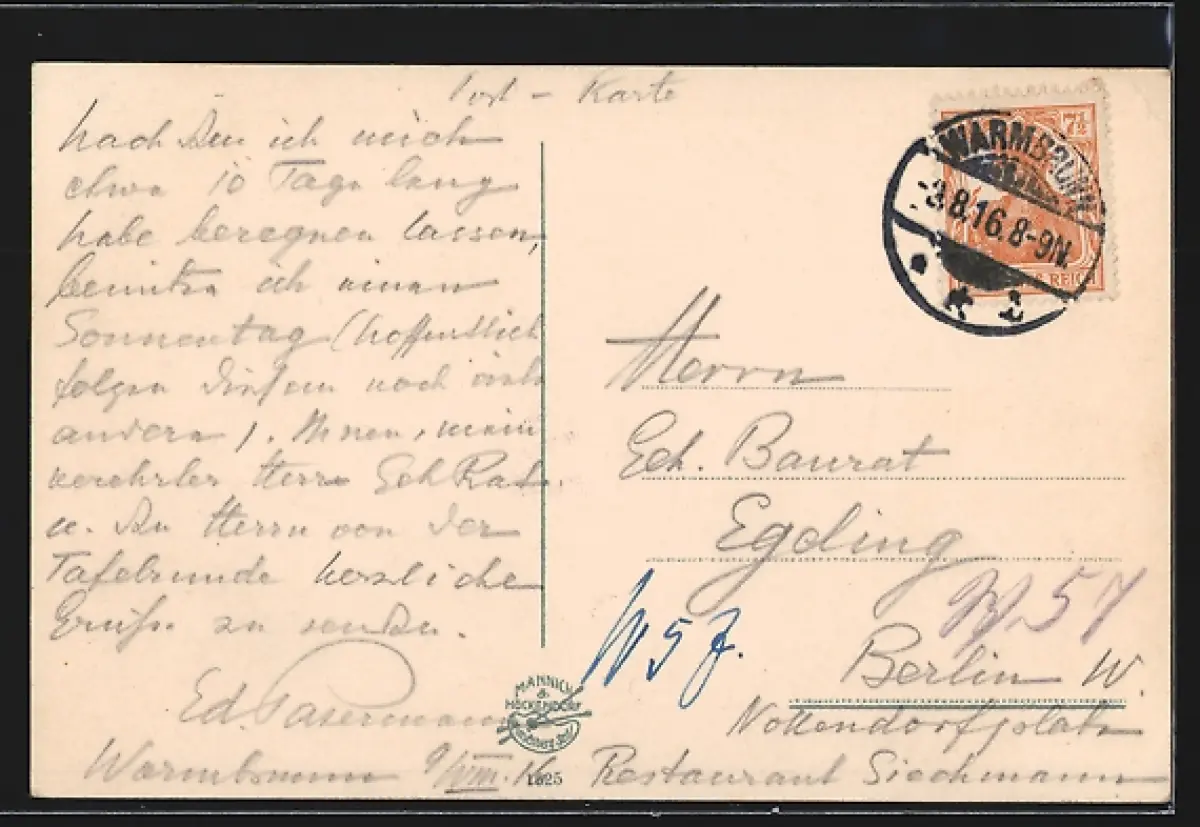 Post - Karte
nach dem ich mich
etwa 10 Tage lang
habe beregnen lassen,
benutze ich einen
Sonnentag (hoffentlich
folgen diesem noch viele
andere). Ihnen, mein
verehrter Herr Geh Rat.
u. den Herrn von der
Tafelrunde herzliche
Grüße zu senden.
Ed.
Warmbrunn /VIII. 16
MANNICH
&
HÖCKENDORF
1625
7½
REICH
WARMBRUNN
3.8.16.8-9N.
Herrn
Geh. Baurat
Egeling
W 57
W 57.
Berlin W.
Nollendorfplatz
Restaurant Siechmann